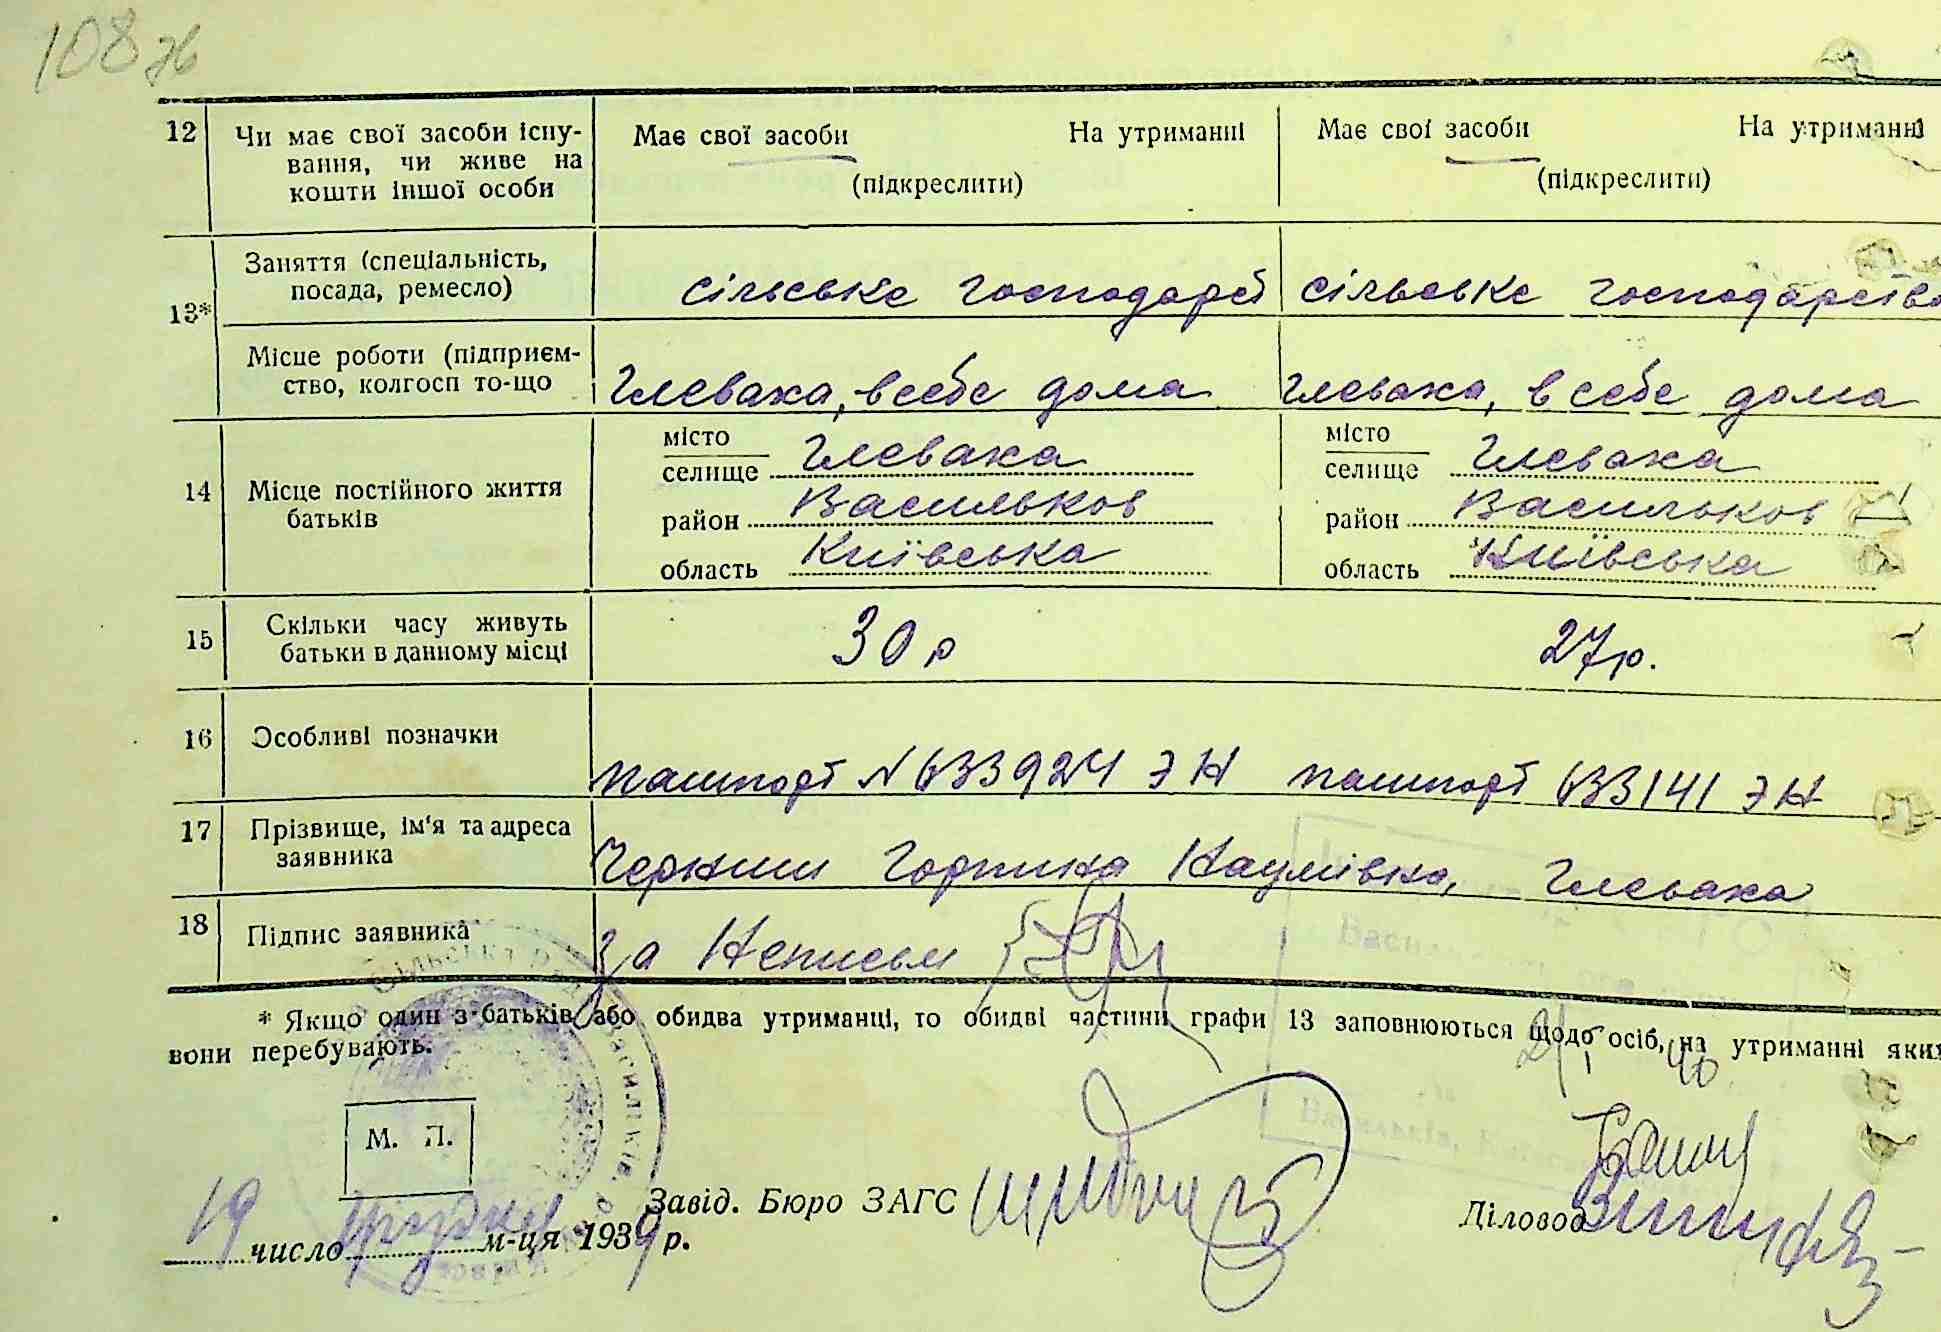 108 зв
12 Чи має свої засоби існу- Має свої засоби На утриманні Має свої засоби На утриманні
вання, чи живе на
кошти іншої особи (підкреслити) (підкреслити)
Заняття (спеціальність,
посада, ремесло) сільське господарст сільське господарство
13*
Місце роботи (підприєм-
ство, колгосп то-що Глеваха, в себе дома Глеваха, в себе дома
місто місто
селище Глеваха селище Глеваха
14 Місце постійного життя
батьків район Васильков район Васильков
область Київська область Київська
15 Скільки часу живуть
батьки в данному місці 30 р 27 р.
16 Особливі позначки
паспорт № 633924 ЭН паспорт 633141 ЭН
17 Прізвище, ім'я та адреса
заявника Наумівна, Глеваха
18 Підпис заявника за Неписьм
* Якщо один з батьків або обидва утриманці, то обидві частини графи 13 заповнюються щодо осіб, на утриманні яких
вони перебувають.
21/I 40
М. П.
Завід. Бюро ЗАГС Діловод
19 число грудня м-ця 1939 р.